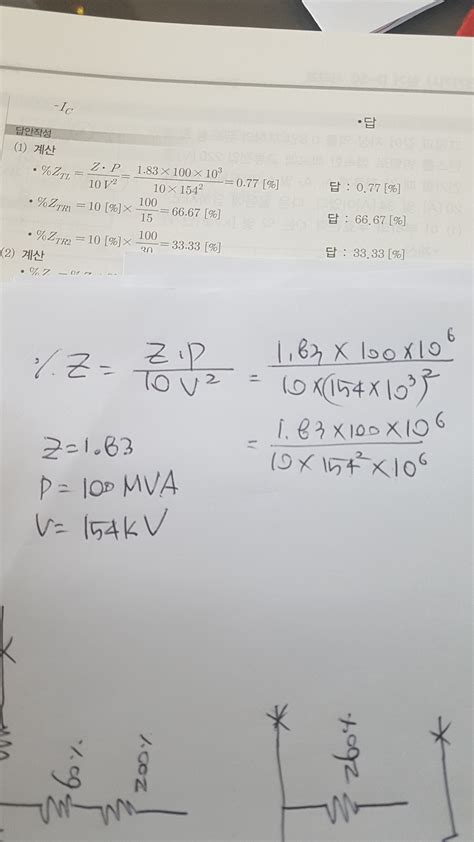 -I_C
•답
답안작성
(1) 계산
• %Z_TL = Z·P / 10V² = 1.83×100×10³ / 10×154² = 0.77 [%] 답 : 0.77 [%]
• %Z_TR1 = 10 [%]× 100/15 = 66.67 [%] 답 : 66.67 [%]
• %Z_TR2 = 10 [%]× 100/30 = 33.33 [%] 답 : 33.33 [%]
(2) 계산
% Z = Z.P / 10 V² = 1.83 × 100 × 10⁶ / 10×(154×10³)²
Z=1.83
= 1.83×100×10⁶ / 10×154²×10⁶
P = 100 MVA
V= 154kV
60%
200%
260%